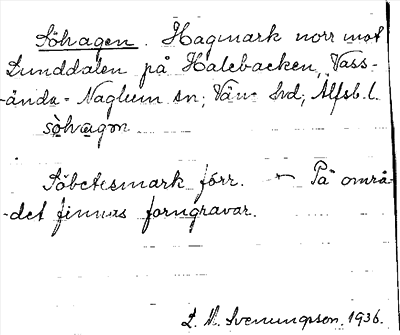 Söhagen. Hagmark norr mot
Lunddalen på Halebacken, Vass-
-ända-Naglum sn; Väne hd; Älfsb. l.
sò̤hvagon
Söbetesmark förr. — På områ-
-det finnas forngravar.
L. M. Svenungsson 1936.